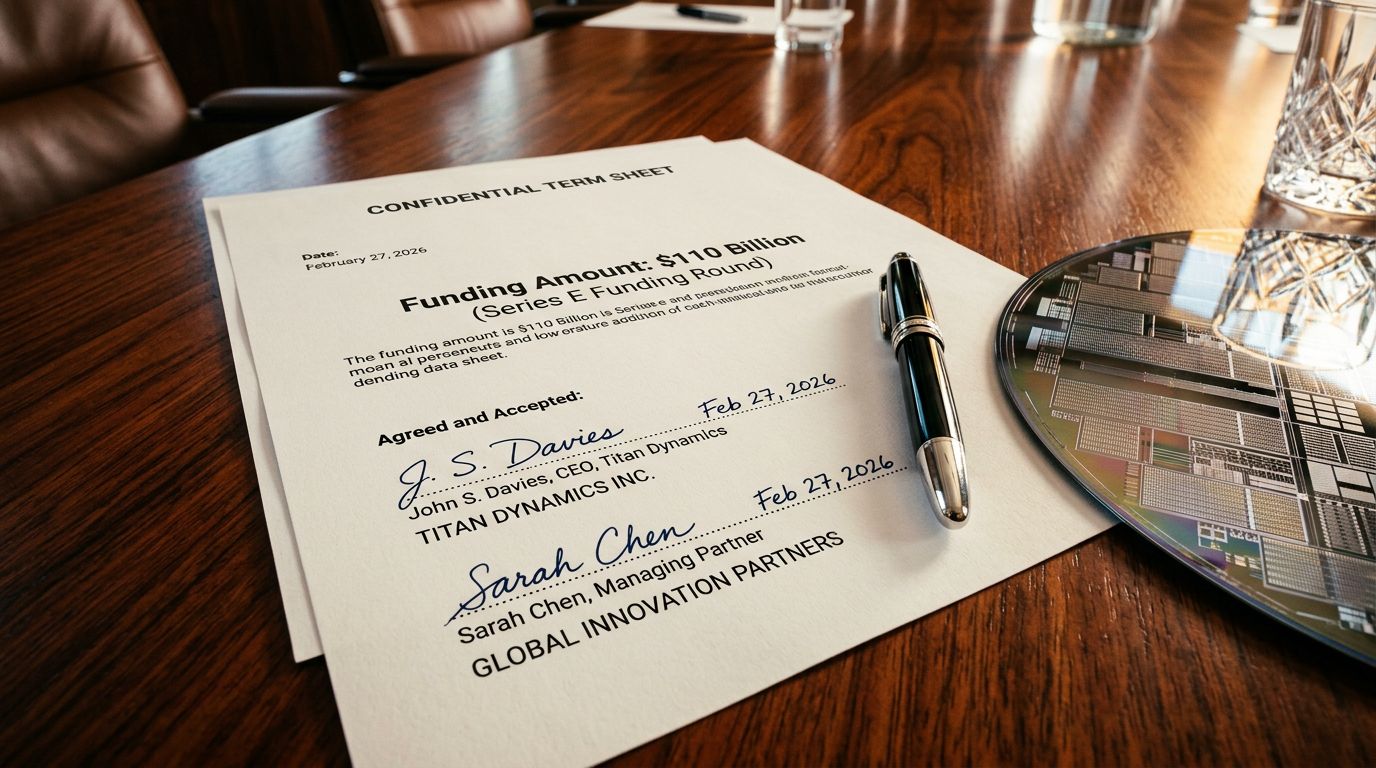 CONFIDENTIAL TERM SHEET
Date:
February 27, 2026
Funding Amount: $110 Billion
(Series E Funding Round)
The funding amount is $110 Billion is Series e and
moan al perseneuts and low erature addition of
dending data sheet.
Agreed and Accepted:
J. S. Davies Feb 27, 2026
John S. Davies, CEO, Titan Dynamics
TITAN DYNAMICS INC.
Sarah Chen Feb 27, 2026
Sarah Chen, Managing Partner
GLOBAL INNOVATION PARTNERS